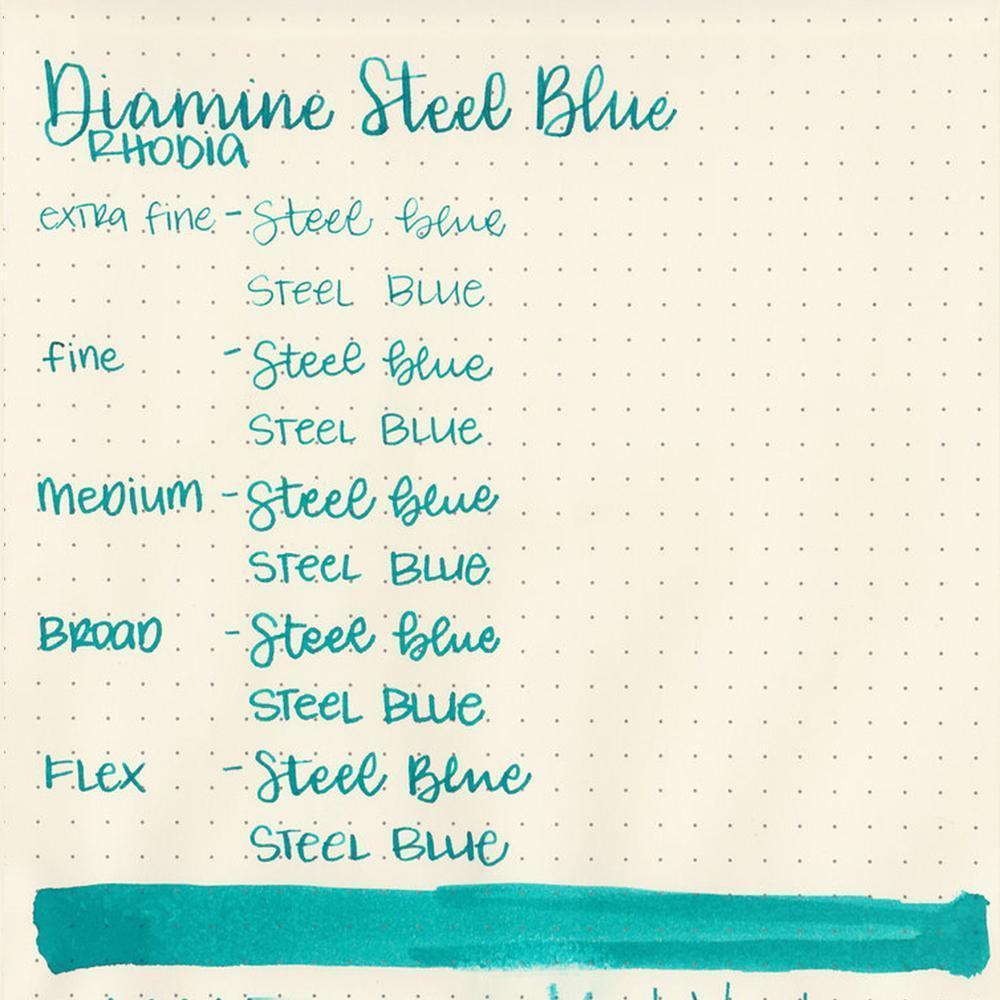 Diamine Steel Blue
RHODIA
extra fine - Steel blue
STEEL BLUE
fine - Steel blue
STEEL BLUE
Medium - Steel blue
STEEL BLUE
BROAD - Steel blue
STEEL BLUE
FLEX - Steel Blue
STEEL BLUE